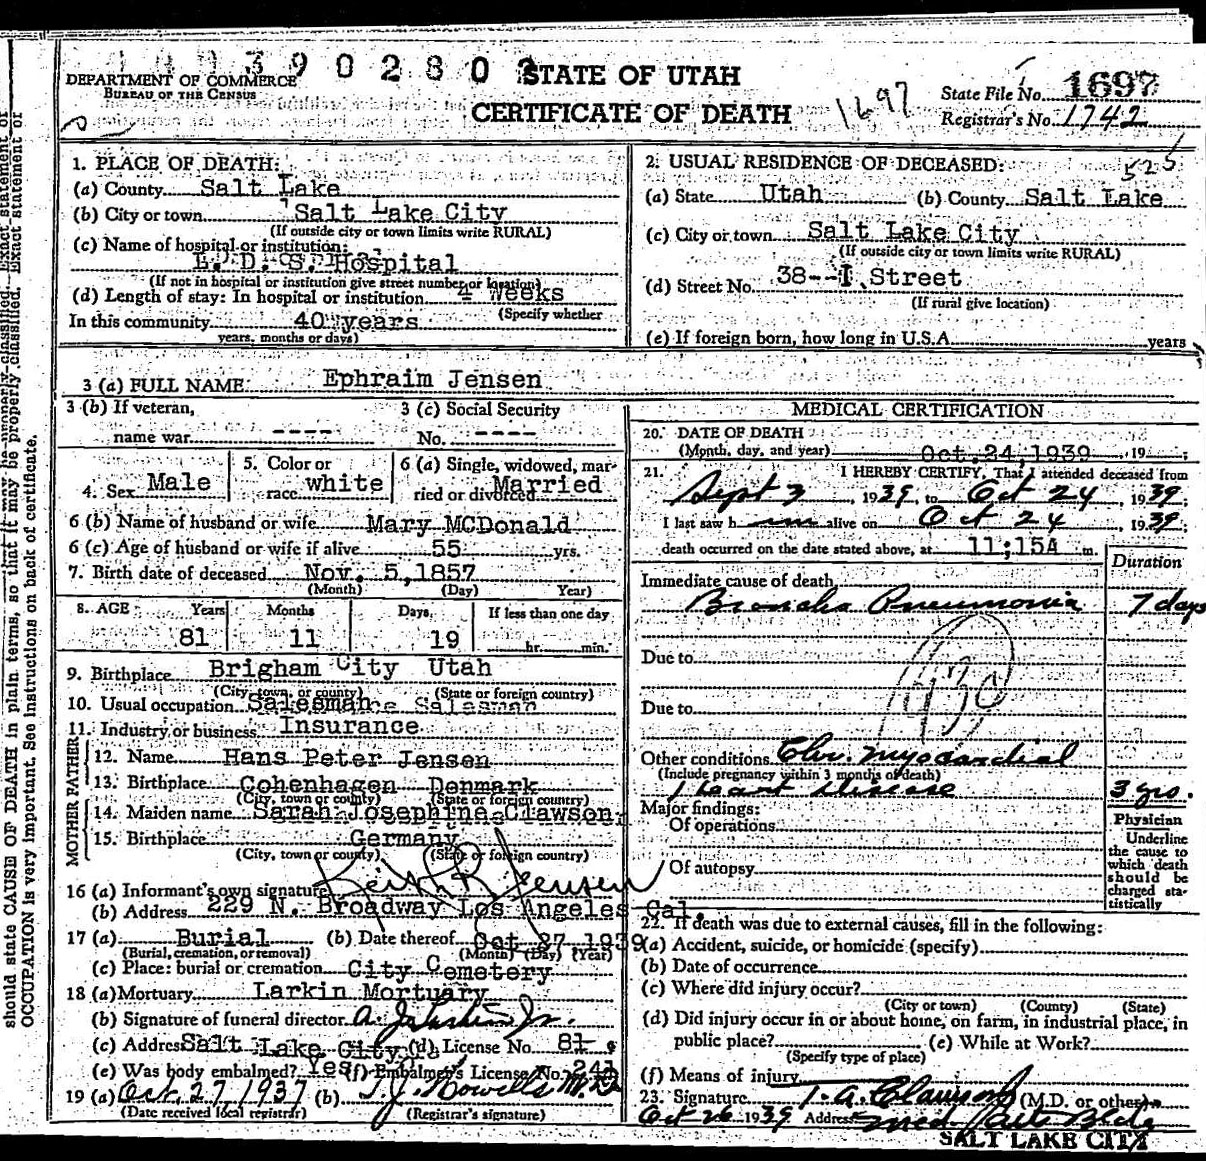 1939028 0
DEPARTMENT OF COMMERCE
BUREAU OF THE CENSUS
STATE OF UTAH
CERTIFICATE OF DEATH
1697
State File No. 1697
Registrar's No. 1742
525
1. PLACE OF DEATH:
(a) County Salt Lake
(b) City or town Salt Lake City
(If outside city or town limits write RURAL)
(c) Name of hospital or institution:
L. D. S. Hospital
(If not in hospital or institution give street number or location)
(d) Length of stay: In hospital or institution 4 Weeks
(Specify whether
In this community 40 years
years, months or days)
2. USUAL RESIDENCE OF DECEASED:
(a) State Utah (b) County Salt Lake
(c) City or town Salt Lake City
(If outside city or town limits write RURAL)
(d) Street No. 38--I Street
(If rural give location)
(e) If foreign born, how long in U.S.A. years
3 (a) FULL NAME: Ephraim Jensen
3 (b) If veteran, 3 (c) Social Security
name war ---- No. ----
4. Sex Male 5. Color or race white 6 (a) Single, widowed, married or divorced Married
6 (b) Name of husband or wife Mary MCDonald
6 (c) Age of husband or wife if alive 55 yrs.
7. Birth date of deceased Nov. 5,1857
(Month) (Day) Year)
8. AGE Years Months Days If less than one day
81 11 19 hr. min.
9. Birthplace Brigham City Utah
(City, town, or county) (State or foreign country)
10. Usual occupation Salesman Salesman
11. Industry or business Insurance
FATHER
12. Name Hans Peter Jensen
13. Birthplace Cohenhagen Denmark
(City, town or county) (State or foreign country)
MOTHER
14. Maiden name Sarah Josephine Clawson
15. Birthplace Germany
(City, town or county) (State or foreign country)
16 (a) Informant's own signature Keith R. Jensen
(b) Address 229 N. Broadway Los Angeles Cal.
17 (a) Burial (b) Date thereof Oct 27 1939
(Burial, cremation, or removal) (Month) (Day) (Year)
(c) Place: burial or cremation City Cemetery
18 (a) Mortuary Larkin Mortuary
(b) Signature of funeral director
(c) Address Salt Lake City (d) License No. 81
(e) Was body embalmed? Yes (f) Embalmer's License No. 241
19 (a) Oct. 27, 1937 (b) T. J. Howells M.D.
(Date received local registrar) (Registrar's signature)
MEDICAL CERTIFICATION
20. DATE OF DEATH
(Month, day, and year) Oct. 24, 1939, 19
21. I HEREBY CERTIFY, That I attended deceased from
Sept 3, 1939, to Oct 24, 1939.
I last saw h im alive on Oct 24, 1939.
death occurred on the date stated above, at 11;15A m.
Duration
Immediate cause of death
Broncho Pneumonia 7 days
Due to
Due to
Other conditions Chr. myocardial
(Include pregnancy within 3 months of death)
heart disease 3 yrs.
Major findings:
Of operations
Of autopsy
Physician
Underline
the cause to
which death
should be
charged sta-
tistically
22. If death was due to external causes, fill in the following:
(a) Accident, suicide, or homicide (specify)
(b) Date of occurrence
(c) Where did injury occur?
(City or town) (County) (State)
(d) Did injury occur in or about home, on farm, in industrial place, in
public place? (e) While at Work?
(Specify type of place)
(f) Means of injury
23. Signature T. A. Clawson (M.D. or other)
Oct 26 1939 Address Med. Arts Bldg
SALT LAKE CITY
should state CAUSE OF DEATH in plain terms, so that it may be properly classified. Exact statement of
OCCUPATION is very important. See instructions on back of certificate.